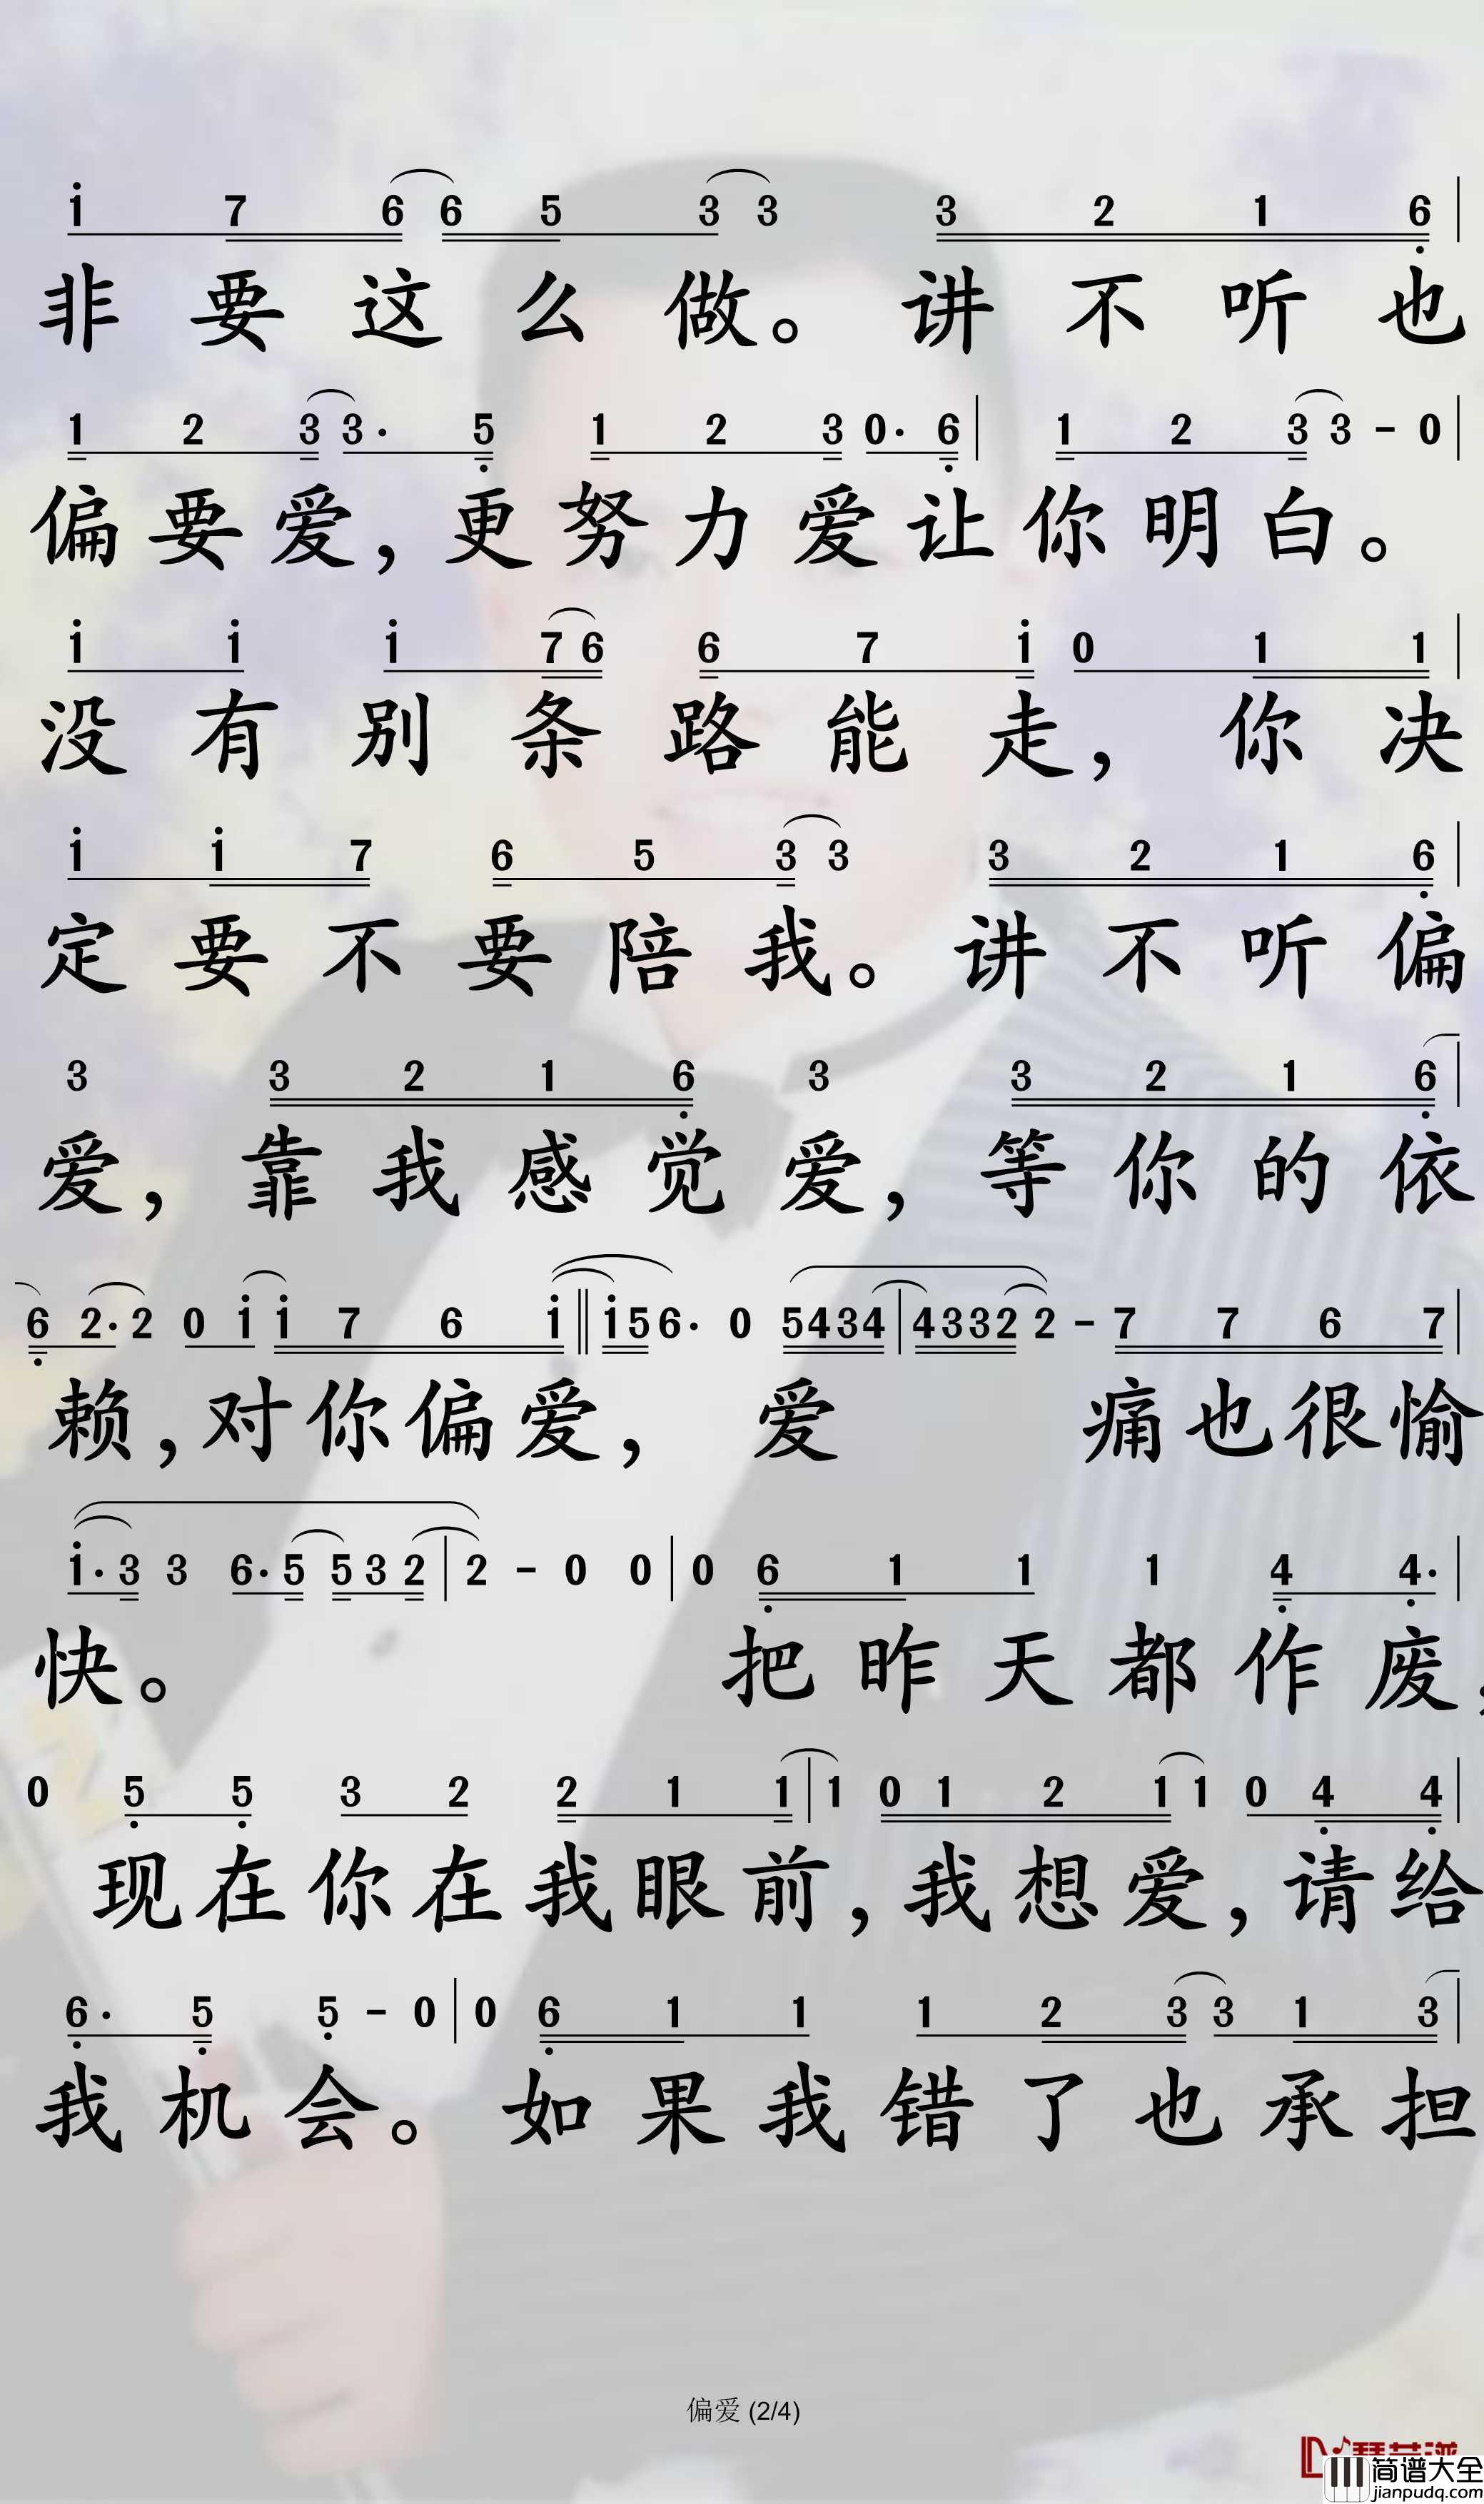 i 7 6 6 5 3 3 3 2 1 6
非 要 这 么 做。 讲 不 听 也
1 2 3 3· 5 1 2 3 0· 6 1 2 3 3 - 0
偏 要 爱, 更 努 力 爱 让 你 明 白。
i i i 7 6 6 7 i 0 1 1
没 有 别 条 路 能 走, 你 决
i i 7 6 5 3 3 3 2 1 6
定 要 不 要 陪 我。 讲 不 听 偏
3 3 2 1 6 3 3 2 1 6
爱, 靠 我 感 觉 爱, 等 你 的 依
6 2· 2 0 i i 7 6 i i 5 6· 0 5 4 3 4 4 3 3 2 2 - 7 7 6 7
赖, 对 你 偏 爱, 爱 痛 也 很 愉
i· 3 3 6· 5 5 3 2 2 - 0 0 0 6 1 1 1 4 4·
快。 把 昨 天 都 作 废,
0 5 5 3 2 2 1 1 1 0 1 2 1 1 0 4 4
现 在 你 在 我 眼 前, 我 想 爱, 请 给
6· 5 5 - 0 0 6 1 1 1 2 3 3 1 3
我 机 会。 如 果 我 错 了 也 承 担
偏爱 (2/4)
简谱大全
jianpudq.com